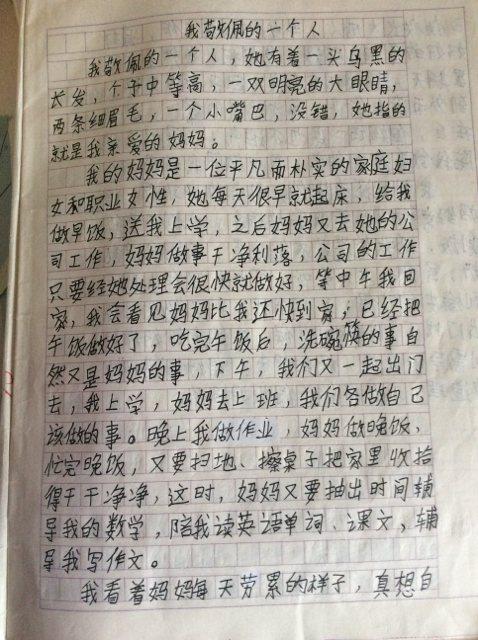 我敬佩的一个人
我敬佩的一个人，她有着一头乌黑的
长发，个子中等高，一双明亮的大眼睛，
两条细眉毛，一个小嘴巴，没错，她指的
就是我亲爱的妈妈。
我的妈妈是一位平凡而朴实的家庭妇
女和职业女性，她每天很早就起床，给我
做早饭，送我上学，之后妈妈又去她的公
司工作，妈妈做事干净利落，公司的工作
只要经她处理会很快就做好，等中午我回
家，我会看见妈妈比我还快到家，已经把
午饭做好了，吃完午饭后，洗碗筷的事自
然又是妈妈的事，下午，我们又一起出门
去，我上学，妈妈去上班，我们各做自己
该做的事。晚上我做作业，妈妈做晚饭，
忙完晚饭，又要扫地、擦桌子把家里收拾
得干干净净，这时，妈妈又要抽出时间辅
导我的数学，陪我读英语单词、课文，辅
导我写作文。
我看着妈妈每天劳累的样子，真想自